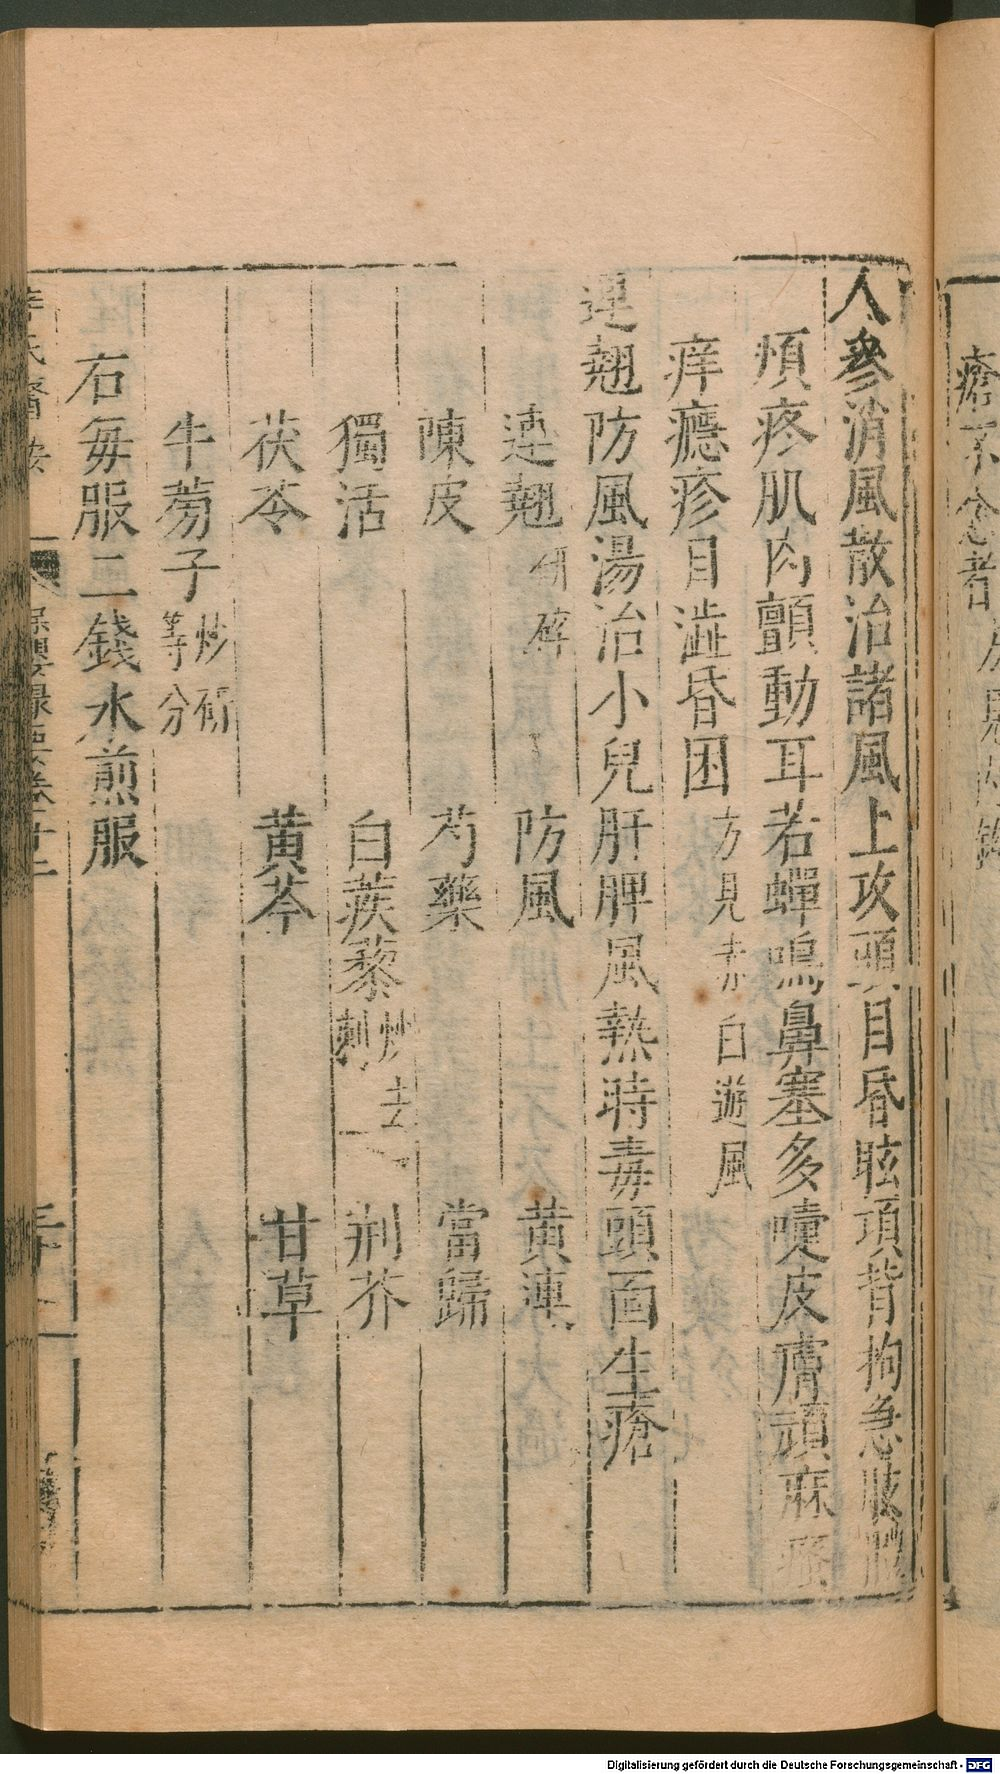 人參消風散治諸風上攻頭目昏眩項背拘急肢
煩疼肌肉顫動耳若蟬鳴鼻塞多嚏皮膚頑麻瘙
痒癮疹目澁昏困方見赤白遊風
連翹防風湯治小兒肝脾風熱時毒頭面生瘡
連翹研碎 防風 黃連
陳皮 芍藥 當歸
獨活 白蒺藜炒去刺 荆芥
茯苓 黃芩 甘草
牛蒡子炒研等分
右每服二錢水煎服
保嬰
Digitalisierung gefördert durch die Deutsche Forschungsgemeinschaft - DFG